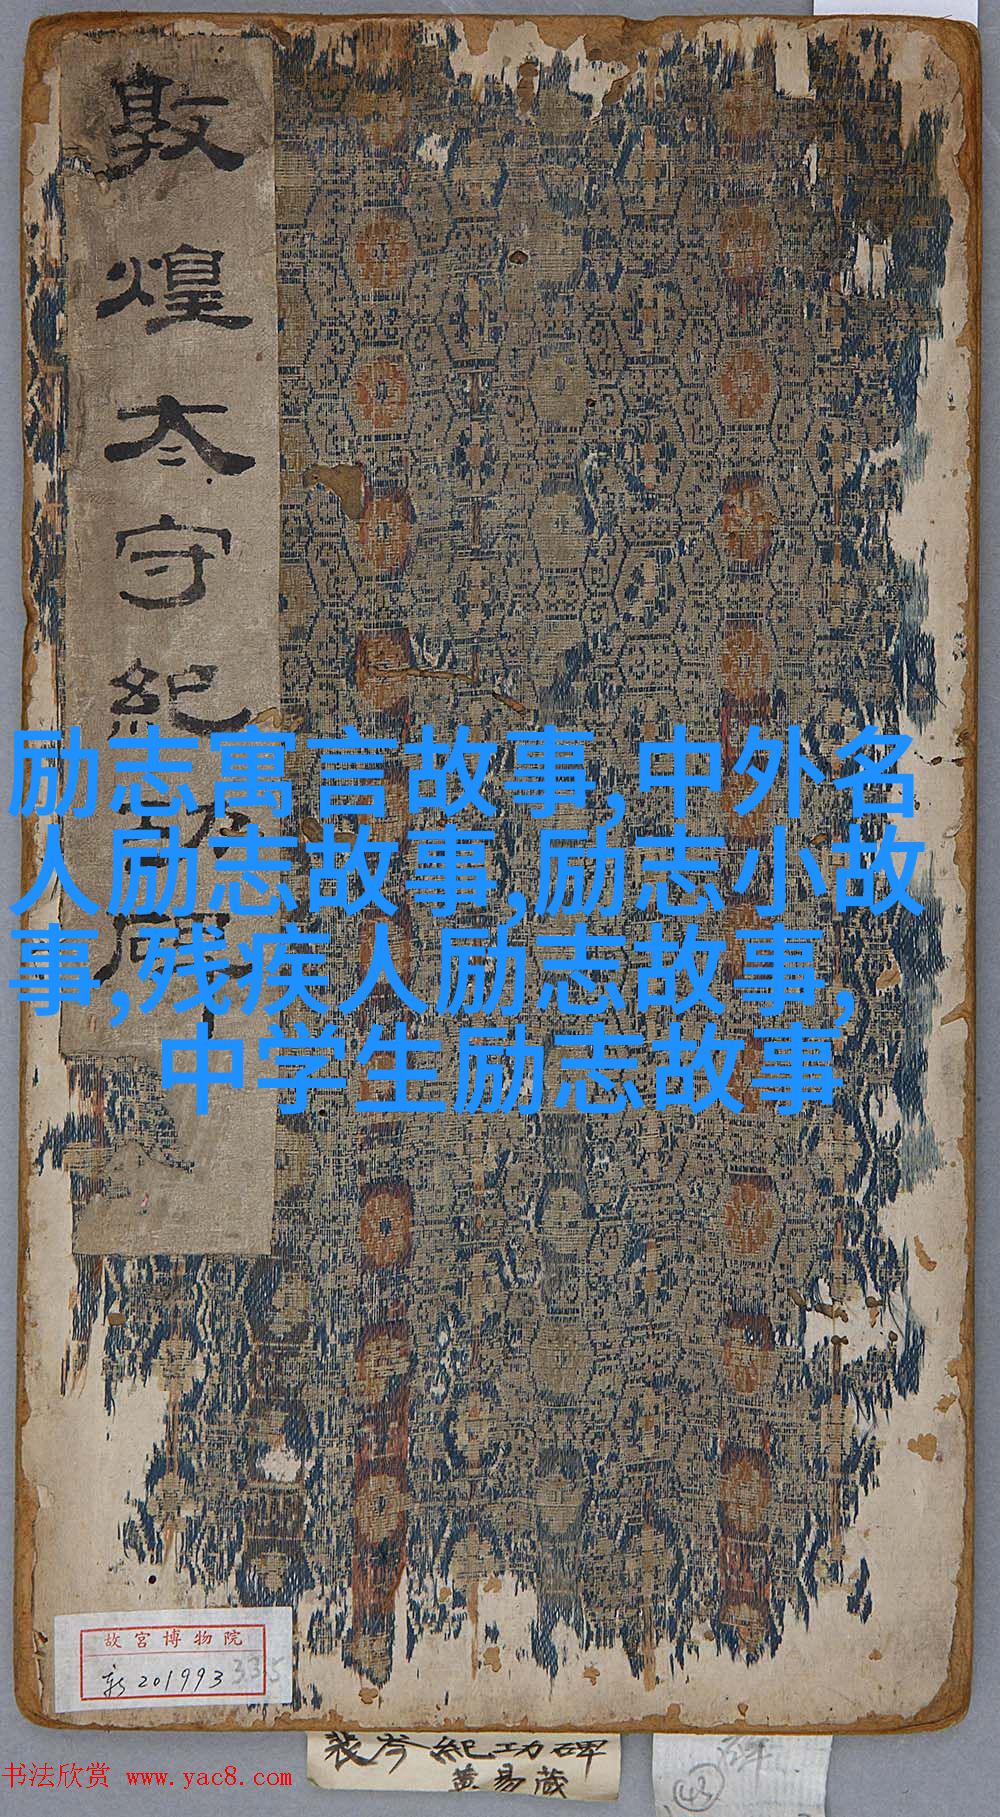 敦煌太守紀功碑
励志寓言故事,中外名
人励志故事,励志小故
事,残疾人励志故事,
中学生励志故事
故宫博物院
新201993
335
裴岑紀功碑
黄易藏
(43)
书法欣赏 www.yac8.com